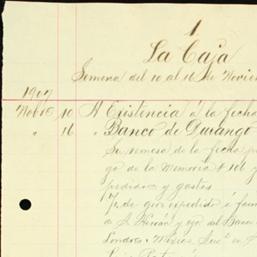 1
La Caja
Semana del 10 al 16 de Novie
1907
Nove 10 A Existencia á la fecha
" 16 " Banco de Durango
Su remesa de la fecha
go de la Memoria # 106 y
pedidos y gastos
de giro expedido á
de S. y cgo del Banco
Londres México